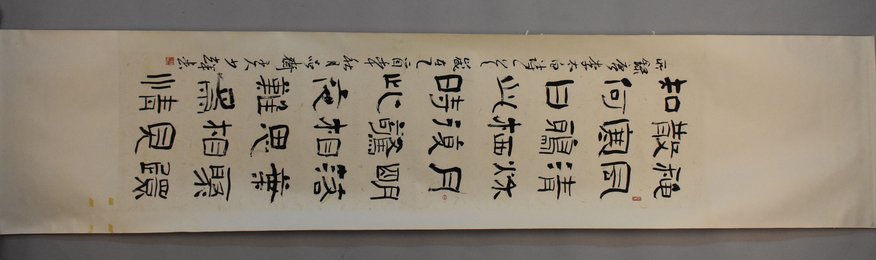 秋風清秋月明落葉聚還
散寒鴉栖復驚相思相見
知何日此時此夜難為情
錄唐李太白詩